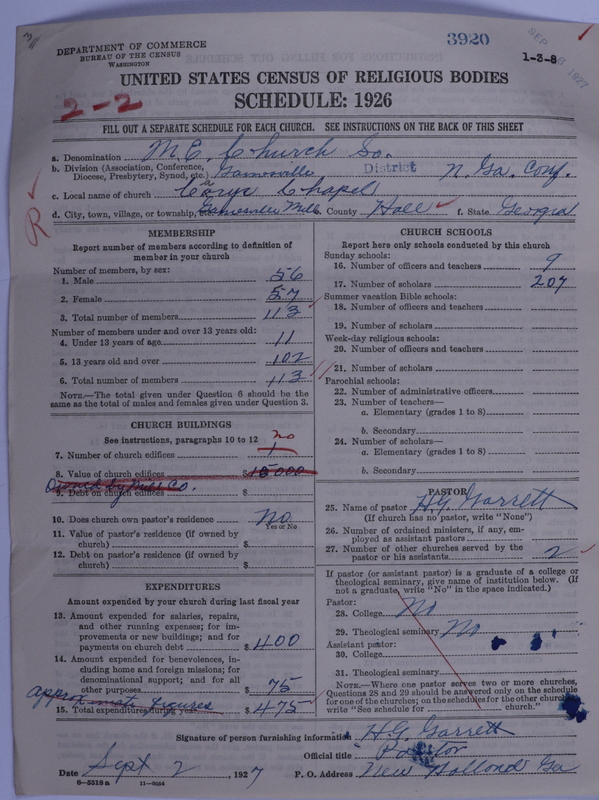 3
3920
SEP 1927
1-3-8
DEPARTMENT OF COMMERCE
BUREAU OF THE CENSUS
WASHINGTON
UNITED STATES CENSUS OF RELIGIOUS BODIES
2-2
SCHEDULE: 1926
FILL OUT A SEPARATE SCHEDULE FOR EACH CHURCH. SEE INSTRUCTIONS ON THE BACK OF THIS SHEET
a. Denomination M.E. Church So.
b. Division (Association, Conference, Diocese, Presbytery, Synod, etc.) Gainesville District N. Ga. Conf.
c. Local name of church Chapel
d. City, town, village, or township, Gainesville Mills County Hall f. State Georgia
R
MEMBERSHIP
Report number of members according to definition of
member in your church
Number of members, by sex:
1. Male 56
2. Female 57
3. Total number of members 113
Number of members under and over 13 years old:
4. Under 13 years of age 11
5. 13 years old and over 102
6. Total number of members 113
NOTE.—The total given under Question 6 should be
same as the total of males and females given under Question 3.
CHURCH BUILDINGS
See instructions, paragraphs 10 to 12 no
7. Number of church edifices 1
8. Value of church edifices $15000
Owned by Mill Co.
9. Debt on church edifices $
10. Does church own pastor's residence No
Yes or No
11. Value of pastor's residence (if owned by
church) $
12. Debt on pastor's residence (if owned by
church) $
EXPENDITURES
Amount expended by your church during last fiscal year
13. Amount expended for salaries, repairs,
and other running expenses; for im-
provements or new buildings; and for
payments on church debt $400
14. Amount expended for benevolences, in-
cluding home and foreign missions; for
denominational support; and for all
other purposes $75
approximate figures
15. Total expenditures during year $475
CHURCH SCHOOLS
Report here only schools conducted by this church
Sunday schools:
16. Number of officers and teachers 9
17. Number of scholars 207
Summer vacation Bible schools:
18. Number of officers and teachers
19. Number of scholars
Week-day religious schools:
20. Number of officers and teachers
21. Number of scholars
Parochial schools:
22. Number of administrative officers
23. Number of teachers—
a. Elementary (grades 1 to 8)
b. Secondary
24. Number of scholars—
a. Elementary (grades 1 to 8)
b. Secondary
PASTOR
25. Name of pastor H.G. Garrett
(If church has no pastor, write "None")
26. Number of ordained ministers, if any, em-
ployed as assistant pastors
27. Number of other churches served by the
pastor or his assistants 2
If pastor (or assistant pastor) is a graduate of a college or
theological seminary, give name of institution below. (If
not a graduate, write "No" in the space indicated.)
Pastor:
28. College No
29. Theological seminary No
Assistant pastor:
30. College
31. Theological seminary
NOTE.—Where one pastor serves two or more churches,
Questions 28 and 29 should be answered only on the schedule
for one of the churches; on the schedule for the other churches
write "See schedule for church."
Signature of person furnishing information H.G. Garrett
Official title Pastor
Date Sept 2, 1927 P. O. Address New Holland Ga
6-5518a 11-9054